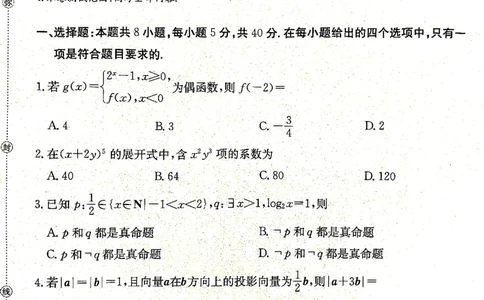 弥
一、选择题:本题共8小题,每小题5分,共40分.在每小题给出的四个选项中,只有一
项是符合题目要求的.
1.若g(x)={2ˣ-1,x≥0, f(x),x<0 为偶函数,则f(-2)=
A.4 B.3 C.-3/4 D.2
封
2.在(x+2y)⁵的展开式中,含x²y³项的系数为
A.40 B.64 C.80 D.120
3.已知p:1/2∈{x∈N|-1<x<2},q:∃x>1,log₂x=1,则
A.p和q都是真命题 B.¬p和q都是真命题
C.p和¬q都是真命题 D.¬p和¬q都是真命题
4.若|a|=|b|=1,且向量a在b方向上的投影向量为1/2b,则|a+3b|=
线